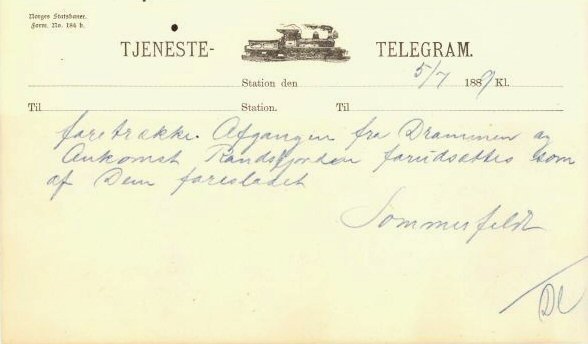 Norges Statsbaner.
Form. No. 184 b.
TJENESTE- TELEGRAM.
Station den 5/7 1889 Kl.
Til Station. Til
foretrække. Afgangen fra Drammen og
Ankomst Randsfjorden forudsættes som
af Dem foreslaaet
Sommerfeldt